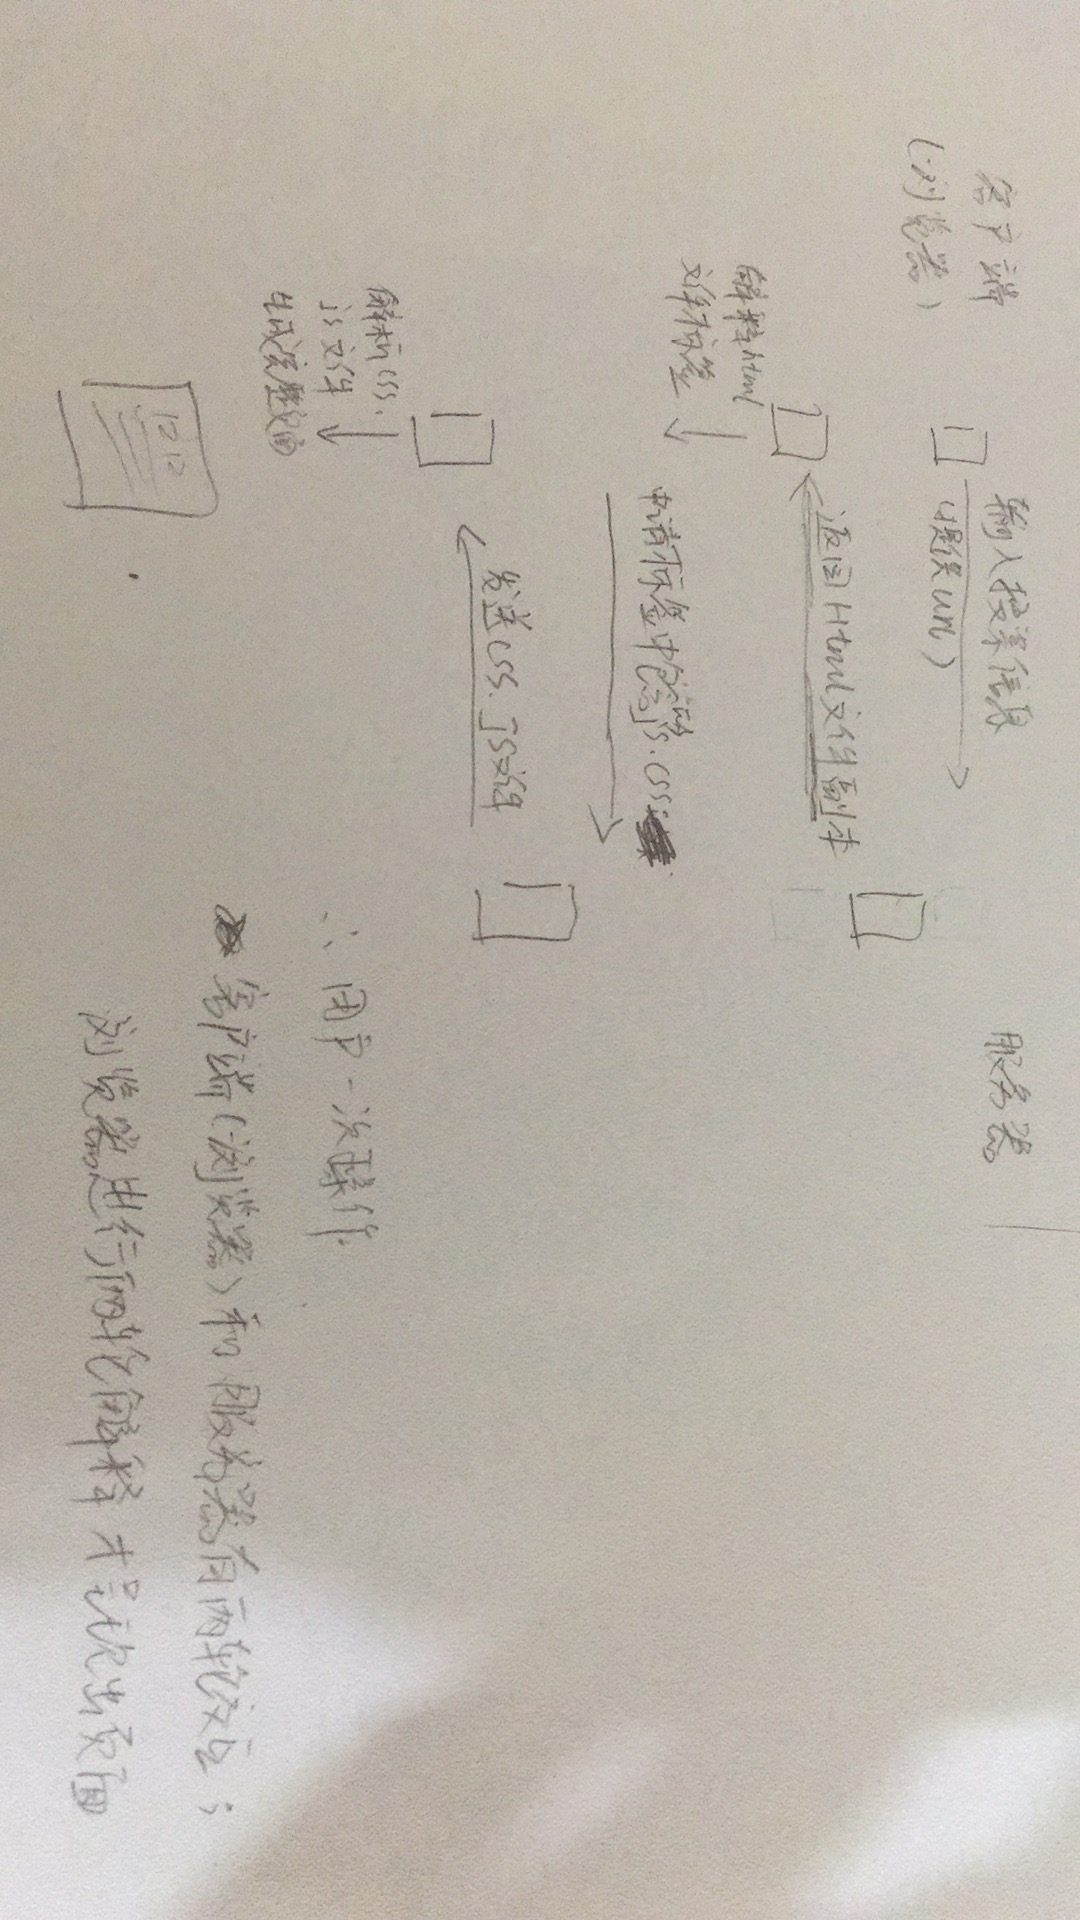 客户端
(浏览器)
服务器
输入搜索信息
(提供url)
返回Html文件副本
解释html
文件标签
申请标签中包含的js.css
发送css.JS文件
解析css.
js文件
生成完整页面
∴ 用户一次操作
客户端(浏览器)和服务器有两轮交互;
浏览器进行两轮解释才呈现出页面